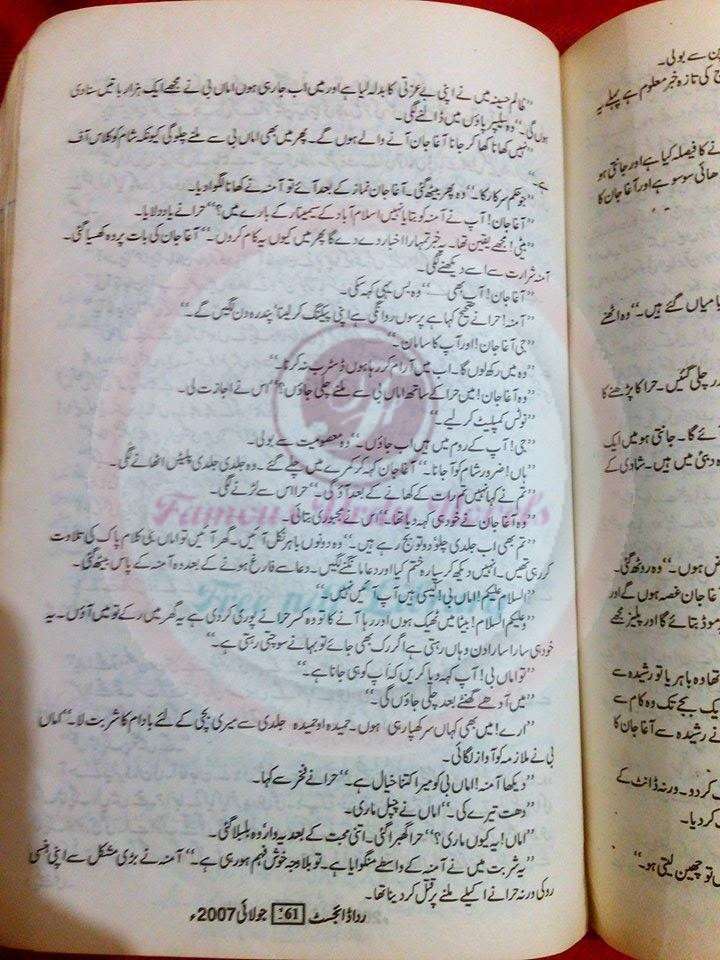 ”ظالم حسینہ میں نے اپنی بے عزتی کا بدلہ لیا ہے اور میں اب جا رہی ہوں اماں بی نے مجھے ایک ہزار باتیں سنا دی
ہوں گی۔“ وہ سلیپر پاؤں میں ڈالنے لگی۔
”نہیں کھانا کھا کر جانا آغا جان آنے والے ہوں گے۔ پھر میں بھی اماں بی سے ملنے چلوں گی کیونکہ شام کو کلاس آف
ہے۔“
”جو حکم سرکار کا۔“ وہ پھر بیٹھ گئی۔ آغا جان نماز کے بعد آئے تو آمنہ نے کھانا لگوا دیا۔
”آغا جان! آپ نے آمنہ کو بتایا نہیں اسلام آباد کے سیمینار کے بارے میں؟“ حرا نے یاد دلایا۔
”بیٹی! مجھے یقین تھا۔ یہ خبر تمہارا اخبار دے دے گا پھر میں کیوں یہ کام کروں۔“ آغا جان کی بات پر وہ کھسیا گئی۔
آمنہ شرارت سے اسے دیکھنے لگی۔
”آغا جان! آپ بھی ......“ وہ بس یہی کہہ سکی۔
”آمنہ! حرا نے صحیح کہا ہے پرسوں روانگی ہے اپنی پیکنگ کر لینا‘ پندرہ دن لگیں گے۔“
”جی آغا جان! اور آپ کا سامان۔“
”وہ میں رکھ لوں گا۔ اب میں آرام کر رہا ہوں ڈسٹرب نہ کرنا۔“
”وہ آغا جان! میں حرا کے ساتھ اماں بی سے ملنے چلی جاؤں؟“ اس نے اجازت لی۔
”نوٹس کمپلیٹ کر لیے۔“
”جی! آپ کے روم میں ہیں اب جاؤں۔“ وہ معصومیت سے بولی۔
”ہاں! ضرور شام کو آ جانا۔“ آغا جان کہہ کر کمرے میں چلے گئے۔ وہ جلدی جلدی پلیٹیں اٹھانے لگی۔
”تم نے کہا نہیں تم رات کے کھانے کے بعد آؤ گی۔“ حرا اس سے لڑنے لگی۔
”وہ آغا جان نے خود ہی کہہ دیا تھا۔“ اس نے مجبوری بتائی۔
”تم بھی اب جلدی چلو دو تو بج رہے ہیں۔“ وہ دونوں باہر نکل آئیں۔ گھر آئیں تو اماں بی کلام پاک کی تلاوت
کر رہی تھیں۔ انہیں دیکھ کر سپارہ ختم کیا اور دعا مانگنے لگیں۔ دعا سے فارغ ہونے کے بعد وہ آمنہ کے پاس بیٹھ گئی۔
”السلام علیکم! اماں بی! کیسی ہیں آپ آئیں نہیں۔“
”وعلیکم السلام! بیٹا میں ٹھیک ہوں اور رہا آنے کا تو وہ کسر حرا نے پوری کر دی ہے یہ گھر میں رکے تو میں آؤں۔ یہ
خود ہی سارا سارا دن وہاں رہتی ہے اگر رک بھی جائے تو بہانے سوچتی رہتی ہے۔“
”تو اماں بی! آپ کہہ دیا کریں کہ آپ کو ہی جانا ہے۔“
”میں آدھے گھنٹے بعد چلی جاؤں گی۔“
”ارے! میں بھی کہاں سر کھپا رہی ہوں۔ حمیدہ او حمیدہ جلدی سے میری بچی کے لئے بادام کا شربت لا۔“ اماں
بی نے ملازمہ کو آواز لگائی۔
”دیکھا آمنہ! اماں بی کو میرا کتنا خیال ہے۔“ حرا نے فخر سے کہا۔
”دھت تیرے کی۔“ اماں نے چپل ماری۔
”اماں! یہ کیوں ماری؟“ حرا گھبرا گئی۔ اتنی محبت کے بعد یہ وار‘ وہ بلبلا گئی۔
”یہ شربت میں نے آمنہ کے واسطے منگوایا ہے۔ تو بلاوجہ خوش فہم ہو رہی ہے۔“ آمنہ نے بڑی مشکل سے اپنی ہنسی
روکی ورنہ حرا نے اکیلے ملنے پر قتل کر دینا تھا۔
ردا ڈائجسٹ 61 جولائی 2007ء